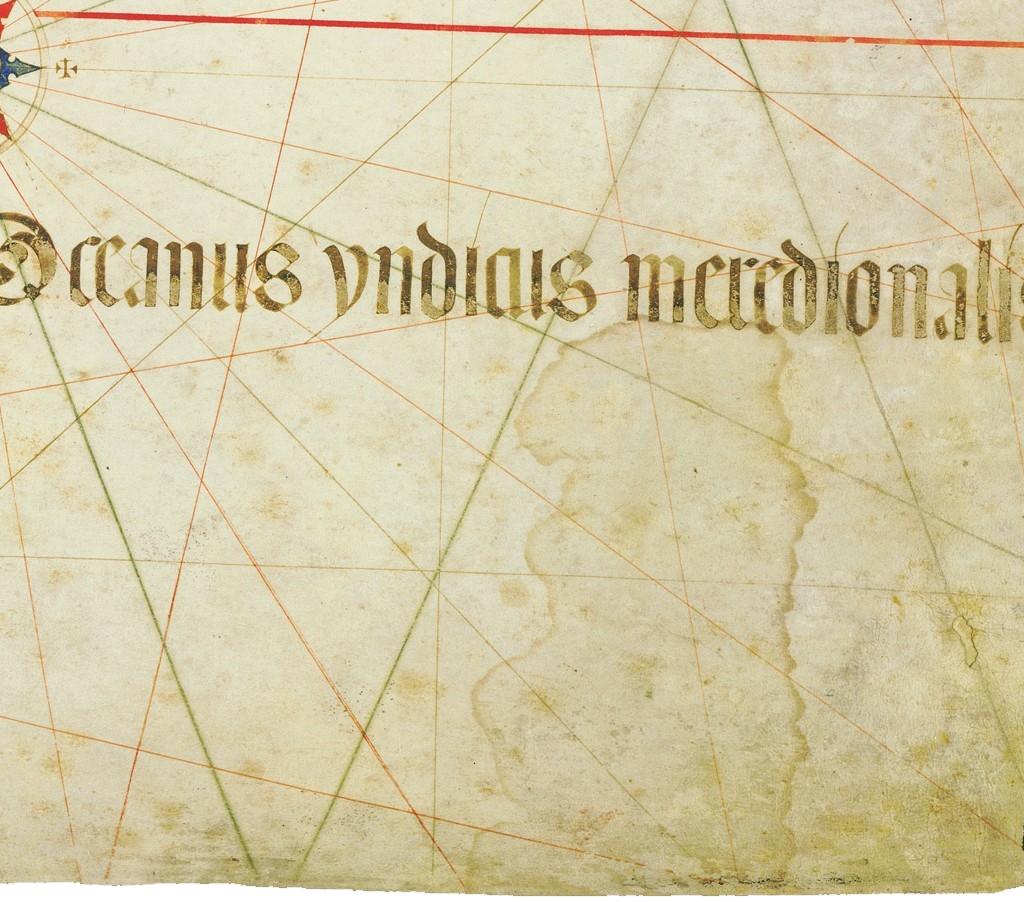 Occeanus yndicus meredionalis